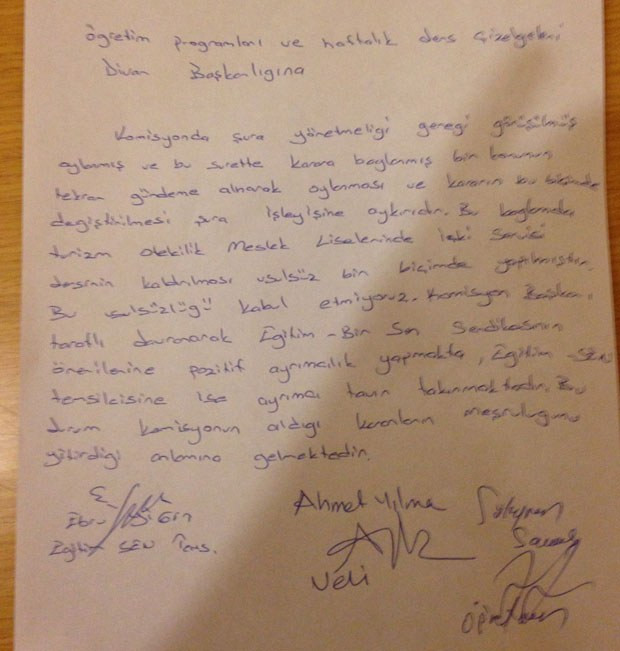 öğretim programları ve haftalık ders çizelgeleri
Divan Başkanlığına
Komisyonda şura yönetmeliği gereği görüşülmüş
oylanmış ve bu surette karara bağlanmış bir konunun
tekrar gündeme alınarak oylanması ve kararın bu biçimde
değiştirilmesi şura işleyişine aykırıdır. Bu bağlamda
turizm Otelcilik Meslek Liselerinde İçki Servisi
dersinin kaldırılması usulsüz bir biçimde yapılmıştır.
Bu usulsüzlüğü kabul etmiyoruz. Komisyon Başkanı
taraflı davranarak Eğitim-Bir Sen Sendikasının
önerilerine pozitif ayrımcılık yapmakta, Eğitim-SEN
temsilcisine ise ayrımcı tavır takınmaktadır. Bu
durum komisyonun aldığı kararların meşruluğunu
yitirdiği anlamına gelmektedir.
Ahmet Yılma Süleyman
Eğitim SEN Tems.
Veli
Öğretmen